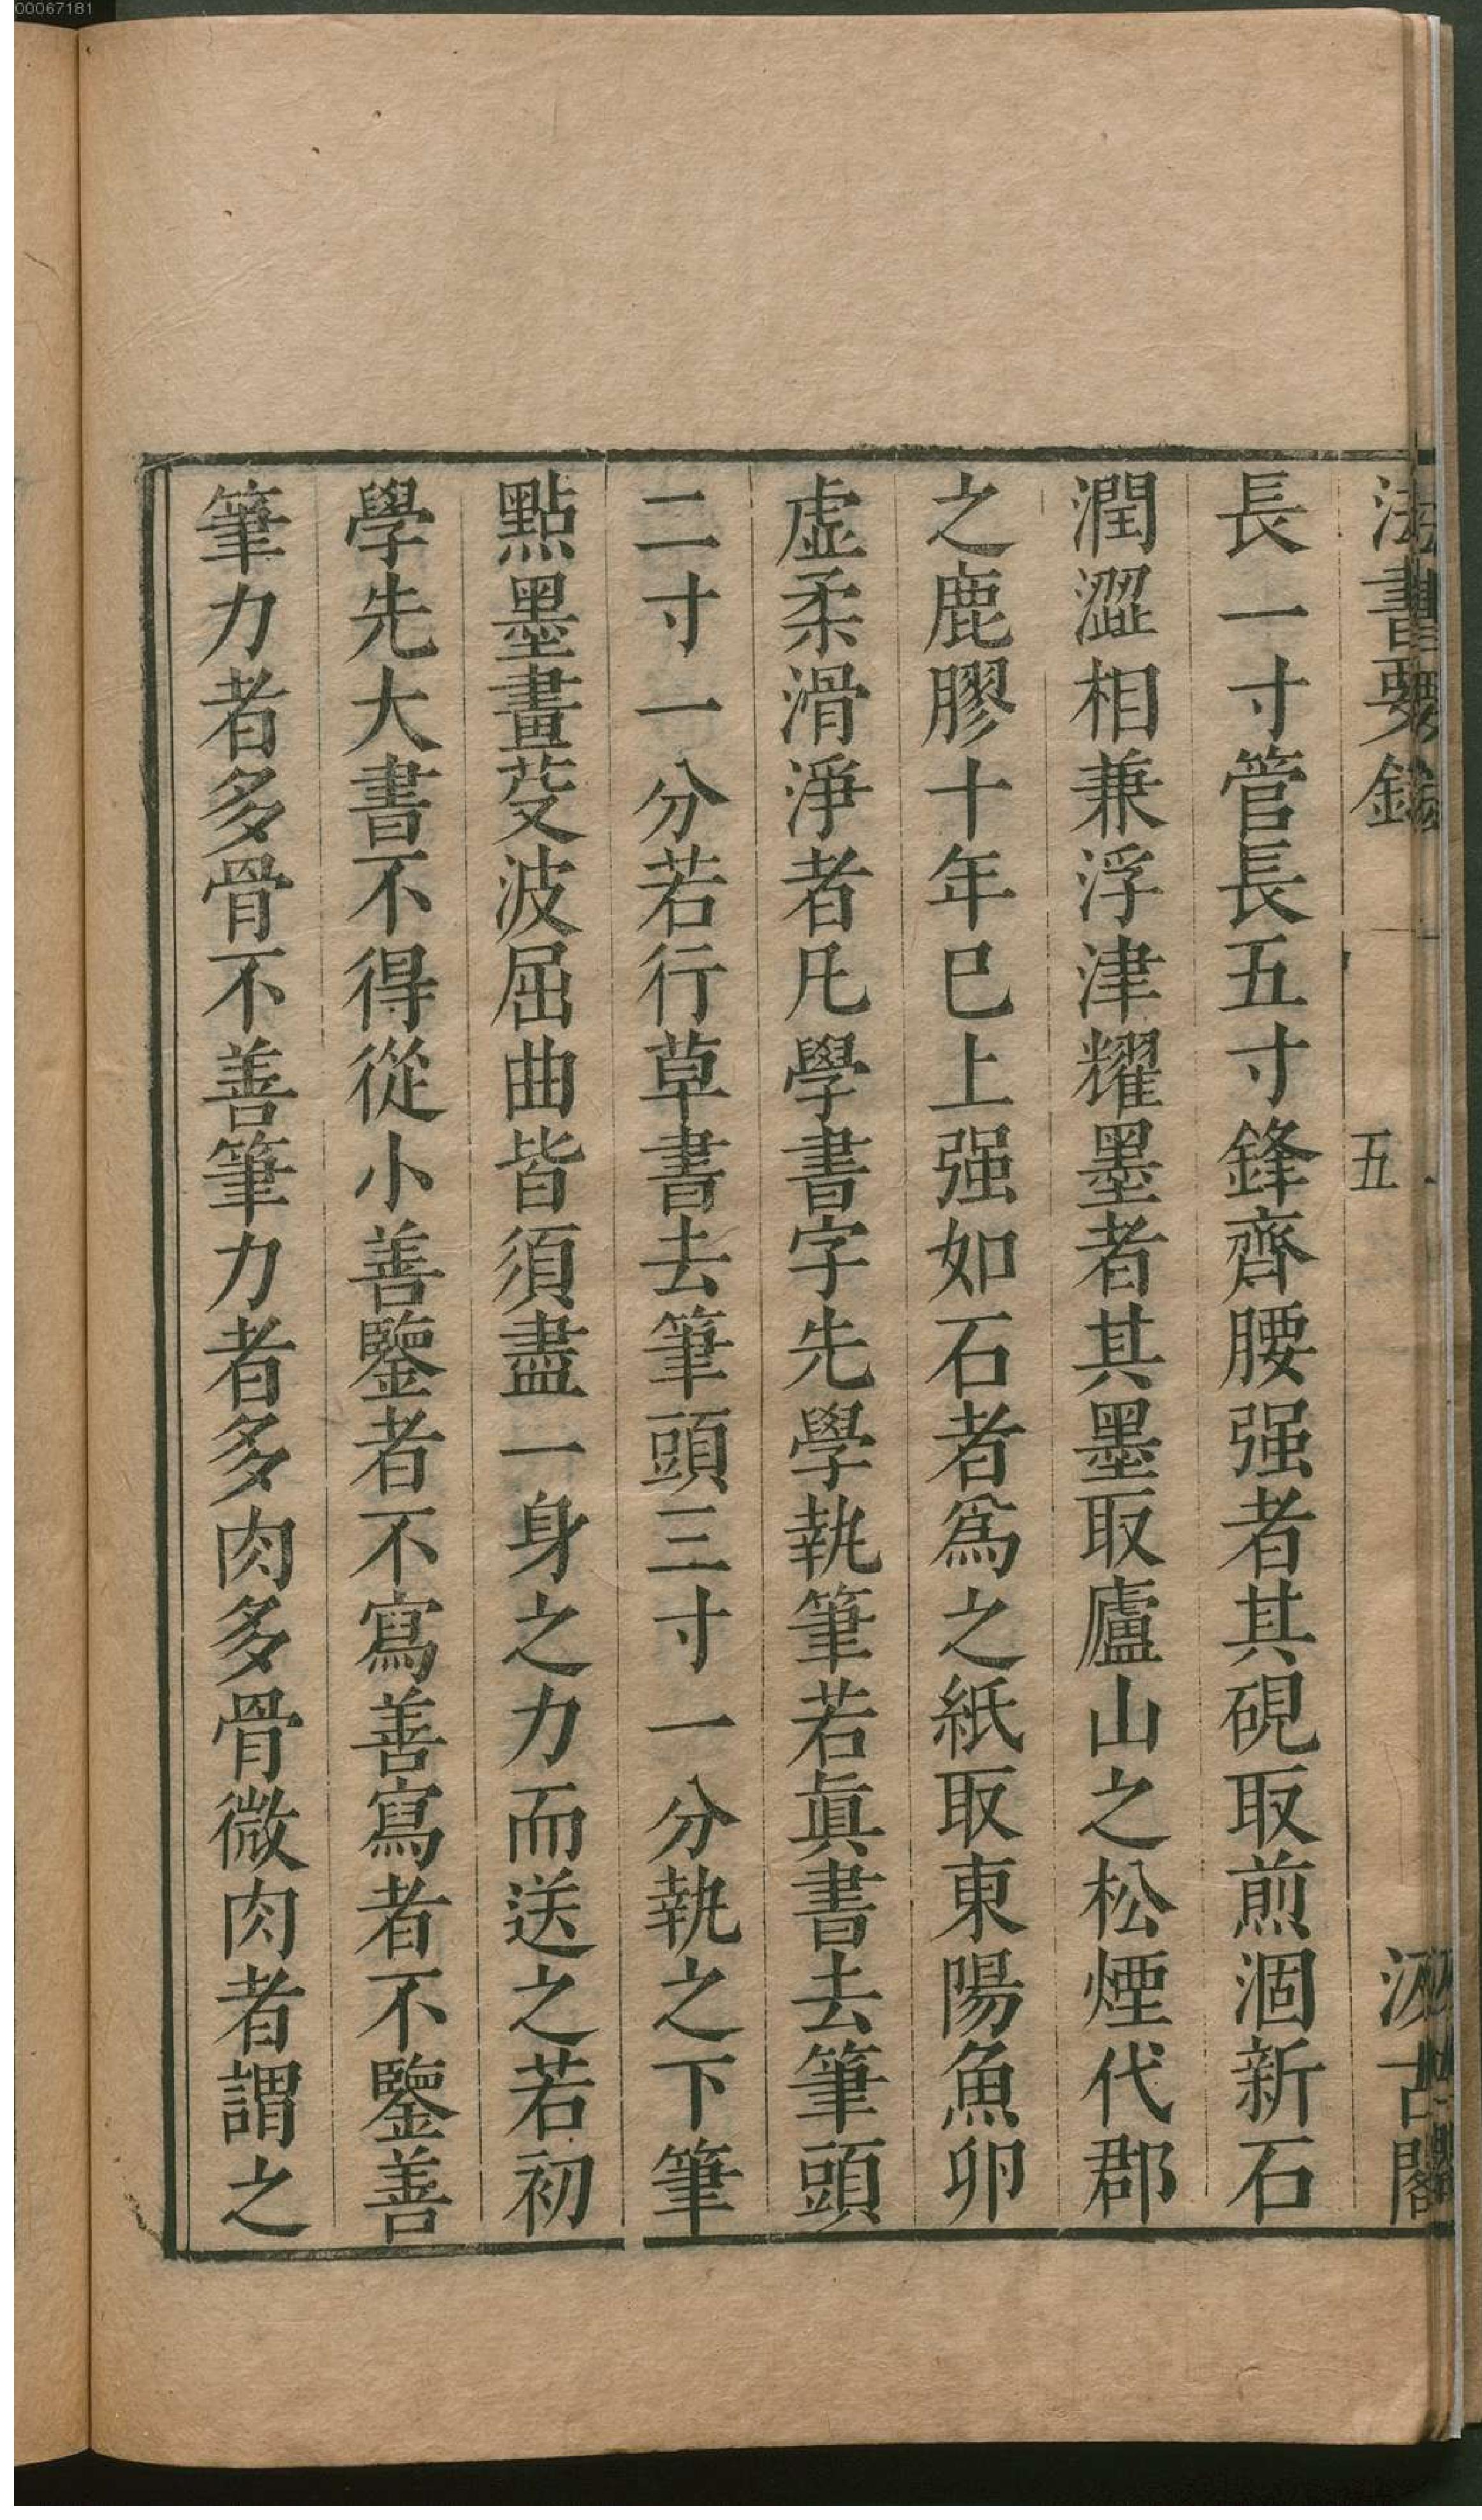 00067181
法書要錄
五
汲古閣
長一寸管長五寸鋒齊腰强者其硯取煎涸新石
潤澀相兼浮津耀墨者其墨取廬山之松煙代郡
之鹿膠十年已上强如石者爲之紙取東陽魚卵
虛柔滑淨者凡學書字先學執筆若眞書去筆頭
二寸一分若行草書去筆頭三寸一分執之下筆
點墨畫芟波屈曲皆須盡一身之力而送之若初
學先大書不得從小善鑒者不寫善寫者不鑒善
筆力者多骨不善筆力者多肉多骨微肉者謂之